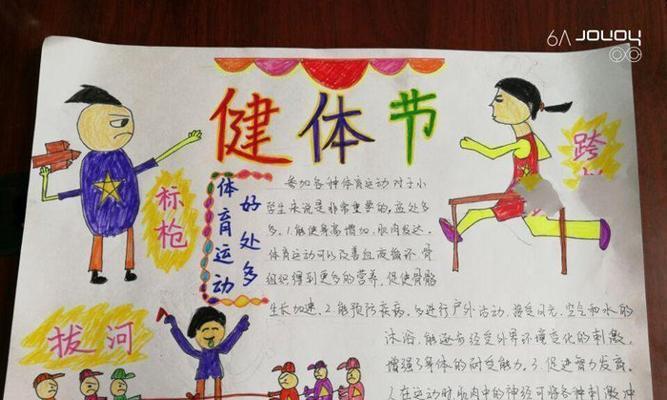 健体节
标枪
跨
体育运动
好处多
参加各种体育运动对于小
学生来说是非常重要的,益处多
多。1.能使身高增加,肌肉发达。
体育运动可以改善血液循环 骨
组织得到更多的营养,促使骨骼
生长加速。2.能预防疾病,多进行户外活动,接受日光、空气和水的
沐浴,能逐步经受外界环境变化的刺激,
增强了身体的耐受能力。3.促进智力发育。
人在运动时肌肉中的神经可将各种刺激冲
拔河